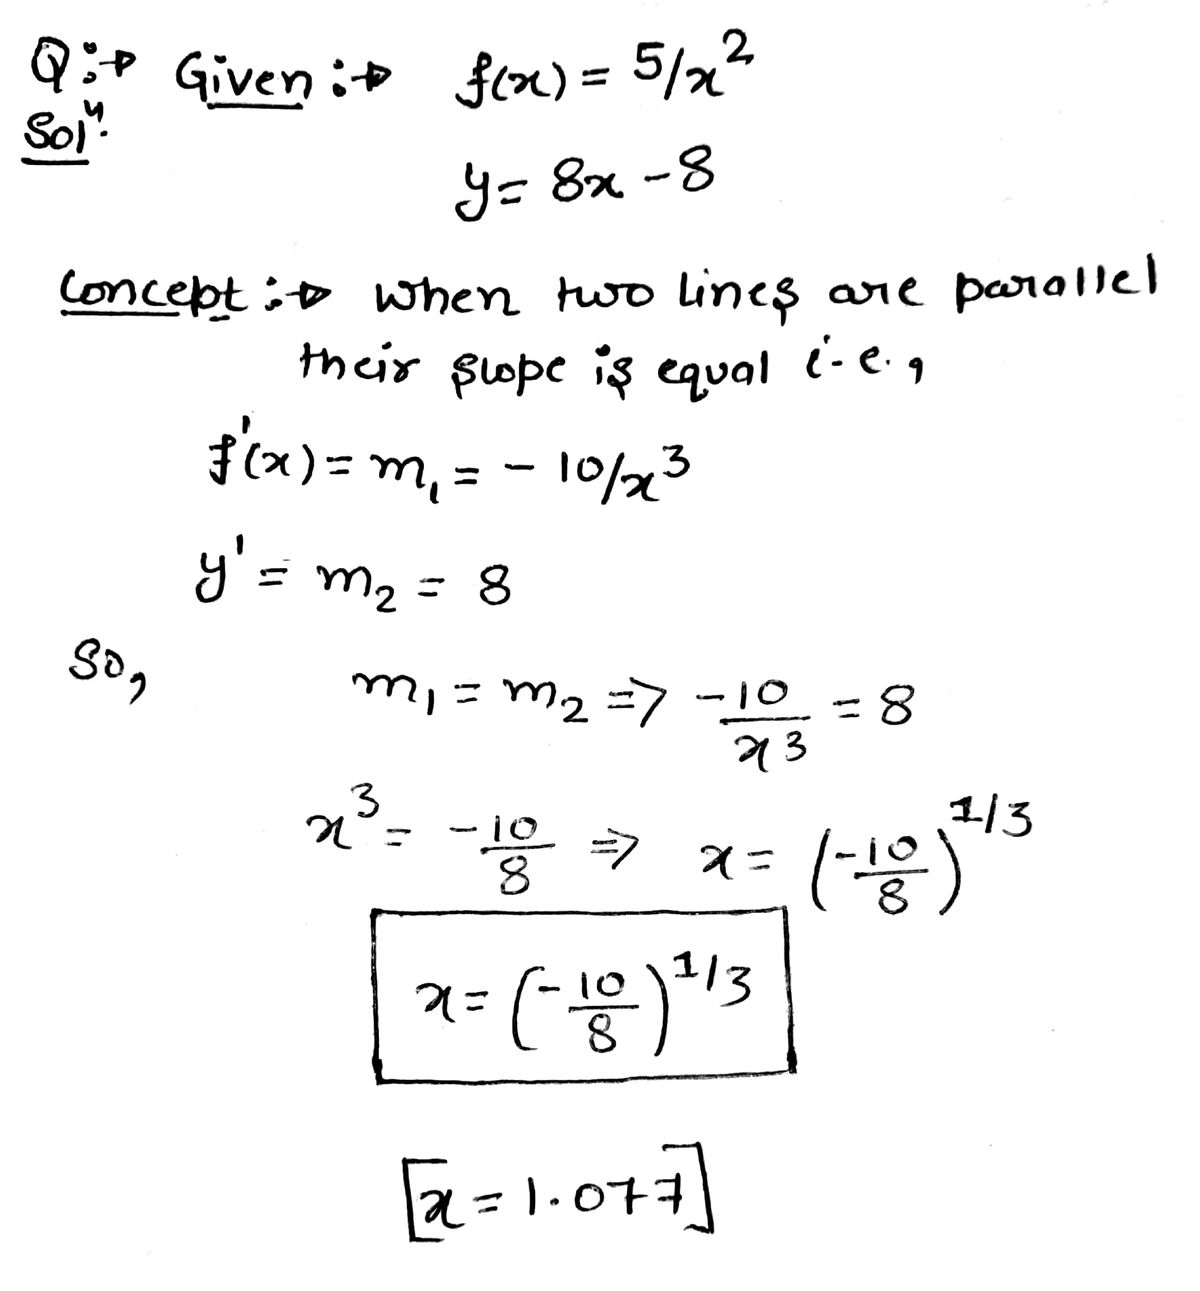 Q:→ Given :→ f(x) = 5/x²
Solⁿ.
y = 8x - 8
Concept :→ when two lines are parallel
their slope is equal i-e.,
f'(x) = m₁ = - 10/x³
y' = m₂ = 8
So,
m₁ = m₂ => -10/x³ = 8
x³ = -10/8 => x = (-10/8)^1/3
x = (-10/8)^1/3
[x = 1.077]